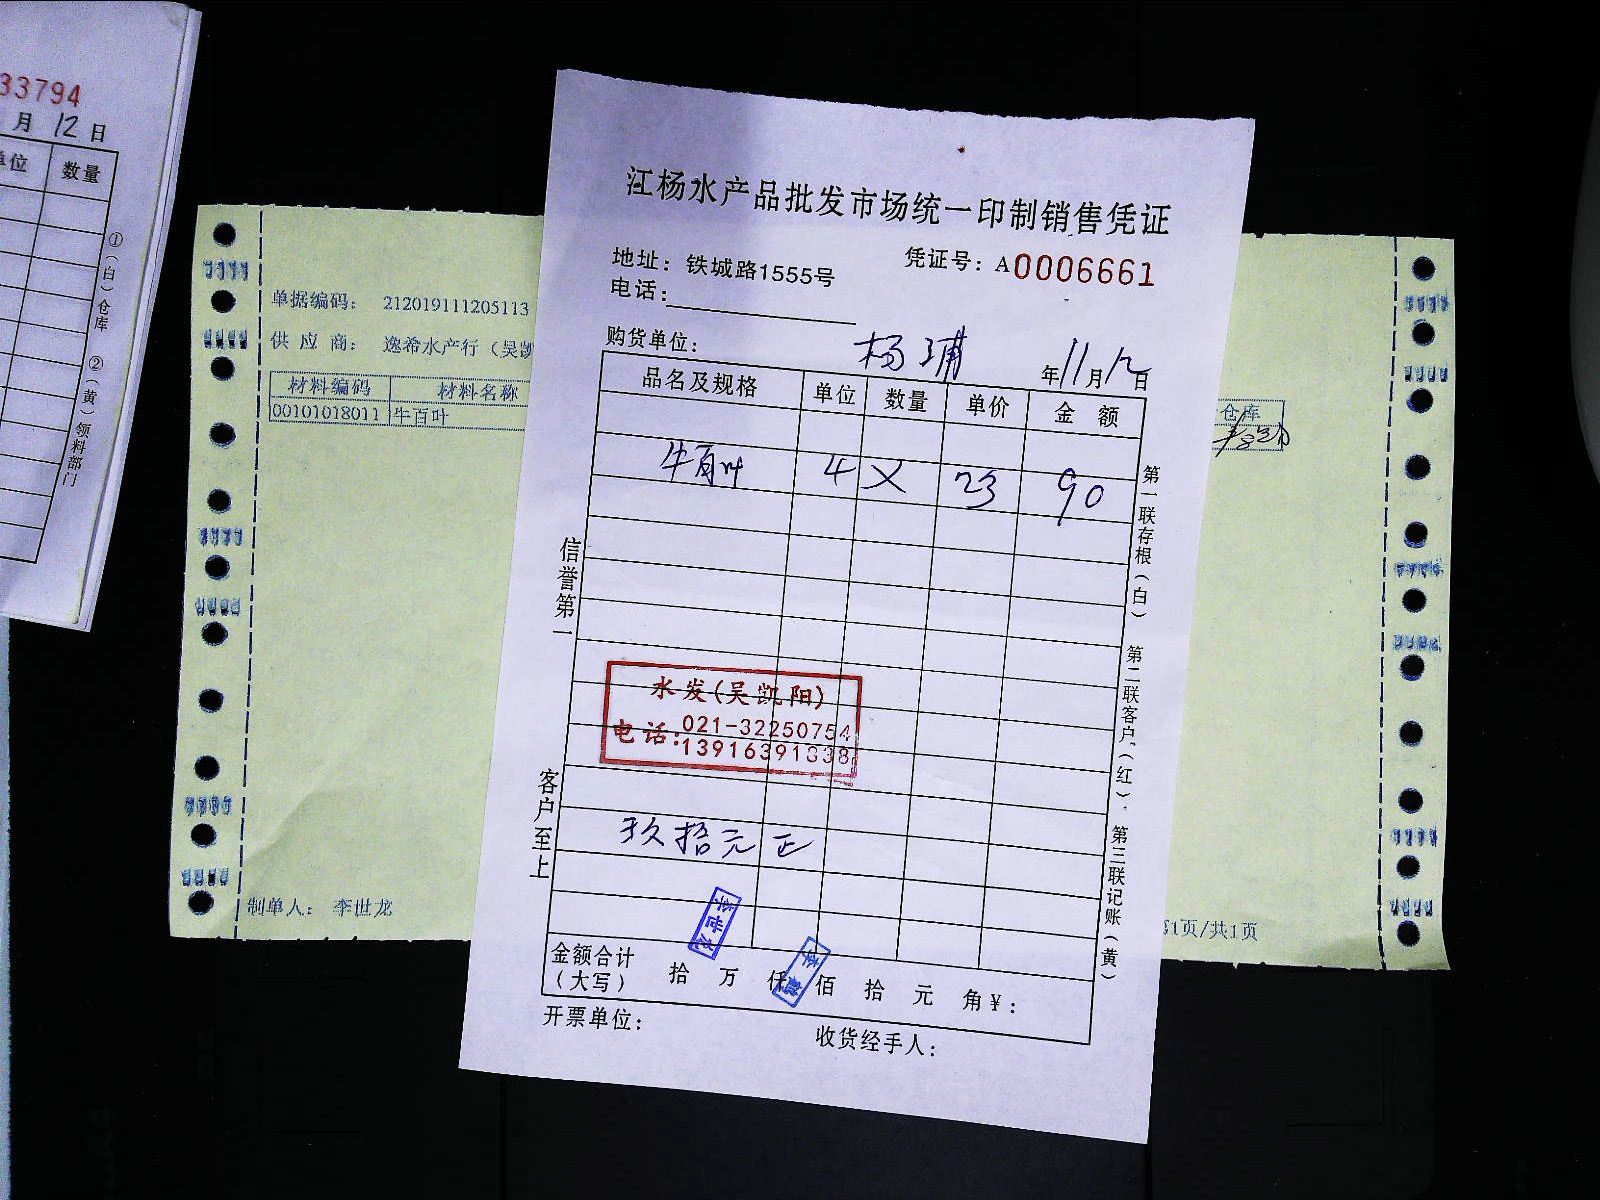 33794
月 12 日
单位 数量
①(白)仓库 ②(黄)领料部门
单据编码: 212019111205113
供 应 商: 逸希水产行(吴凯
材料编码 材料名称
00101018011 牛百叶
仓库
制单人: 李世龙
第1页/共1页
江杨水产品批发市场统一印制销售凭证
地址: 铁城路1555号
凭证号: A0006661
电话:
购货单位: 杨浦
年 11 月 12 日
品名及规格 单位 数量 单价 金 额
牛百叶 4 × 23 90
信誉第一
客户至上
第一联存根(白) 第二联客户(红) 第三联记账(黄)
水发(吴凯阳)
电话:021-32250754
13916391838
玖拾元正
李世龙
金额合计
(大写) 拾 万 仟 佰 拾 元 角 ¥:
开票单位:
收货经手人: